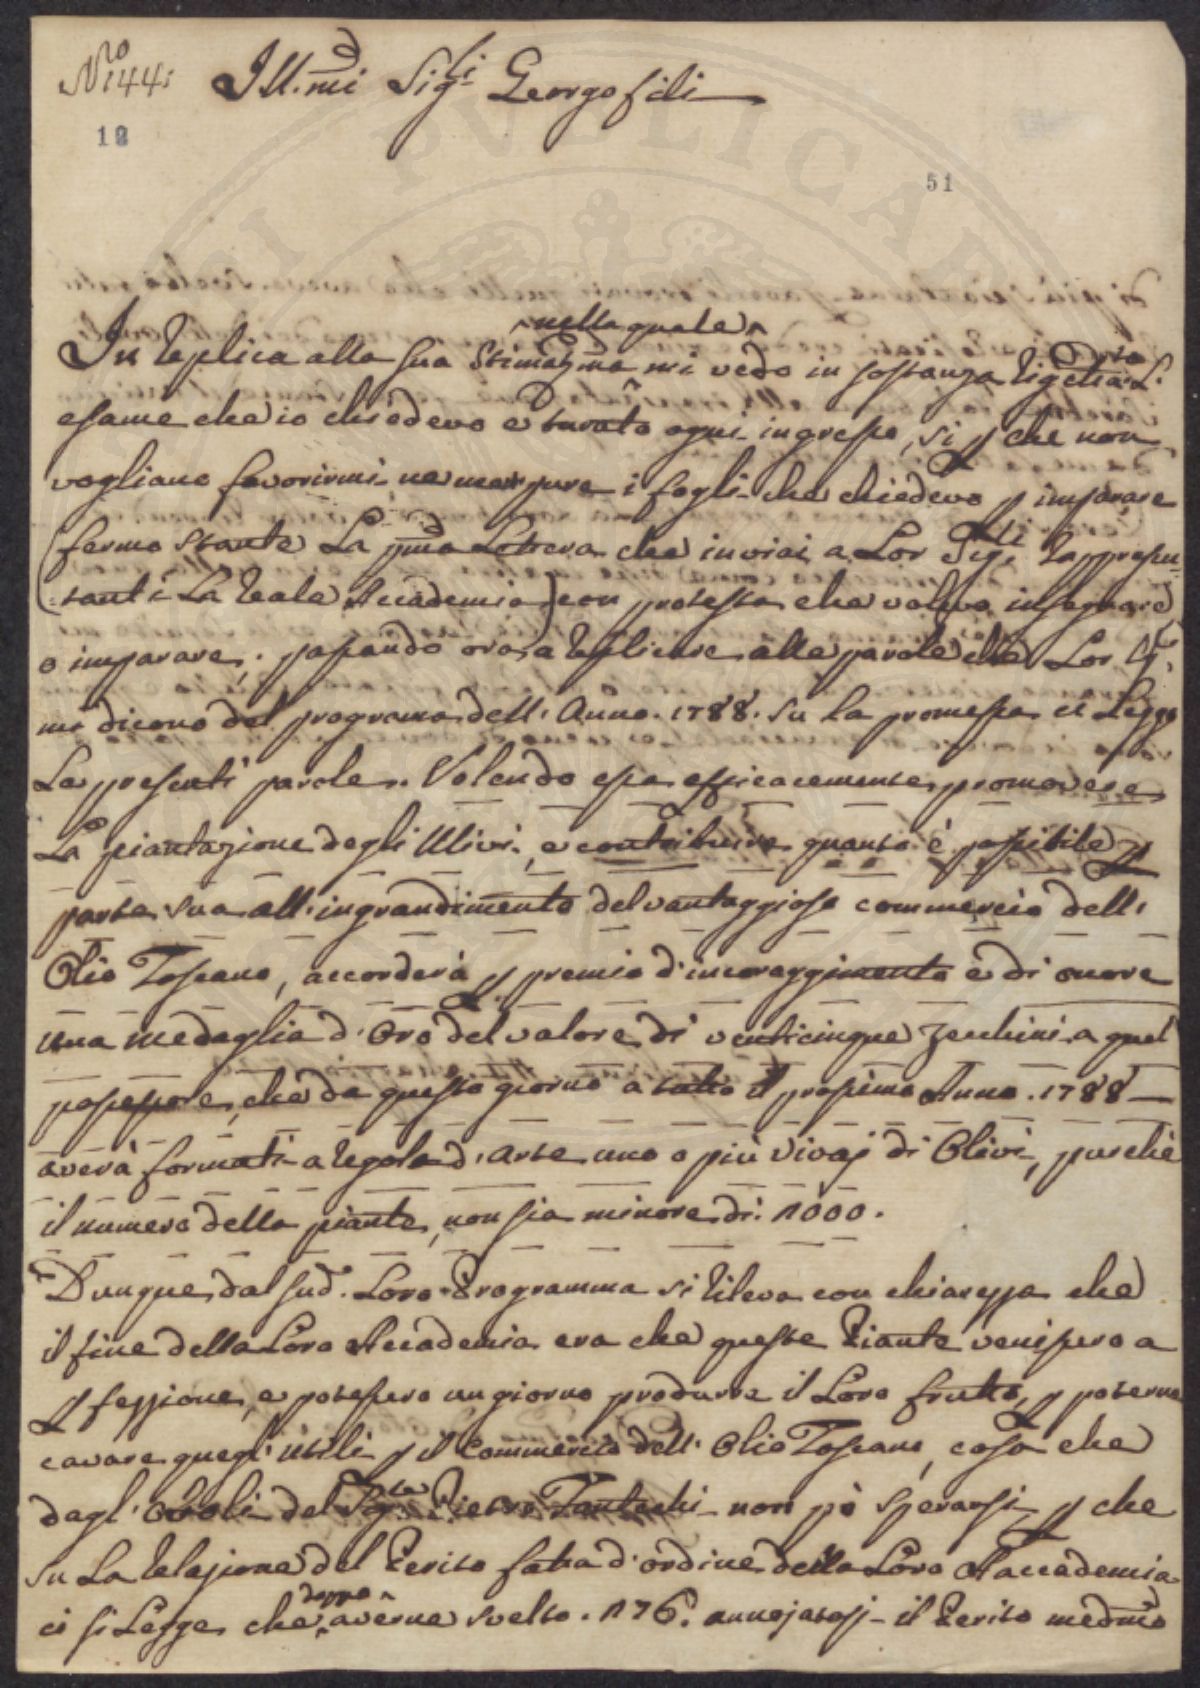 No 144:
Ill.mi Sig.li Georgofili
18
51
nella quale
In Replica alla sua Stimatma mi vedo in sostanza rigettato L'
esame che io chiedevo e turato ogni ingresso, si p che non
vogliano favorirmi ne meno pure i fogli che chiedevo p imparare
(fermo stante La pma Lettera che inviai a Lor Sig.li Rappresen-
tanti La Reale Accademia) con protesta che volevo insegnare
o imparare; passando ora a Replicare alle parole che Lor
mi dicono del programa dell'Anno. 1788. su la promessa ci Leggo
Le presenti parole. Volendo essa efficacemente promovere
La piantazione degli Ulivi, e contribuire quanto è possibile p
parte sua all'ingrandimento del vantaggioso commercio dell'
Olio Toscano, accorderà p premio d'incoraggimento e di onore
una medaglia d'Oro del valore di venticinque Zecchini a quel
possessore, che da questo giorno a tutto il prossimo Anno. 1788
averà formati a Regola d'arte uno o più vivaj di Olivi, purchè
il numero delle piante, non sia minore di: 1000.
Dunque dal sud. Loro Programma si rileva con chiarezza che
il fine della Loro Accademia era che queste Piante venissero a
p fezzione, e potessero un giorno produrre il Loro frutto, p poterne
cavare quegl'utili p il Commercio dell'Olio Toscano, cosa che
dagl' Ovoli del Sig.re Pietro Tantechi non pò sperarsi p che
su La Relazione del Perito fatta d'ordine della Loro Accademia
doppo
ci si Legge che averne svelto. 176. annejatosi il Perito medmo